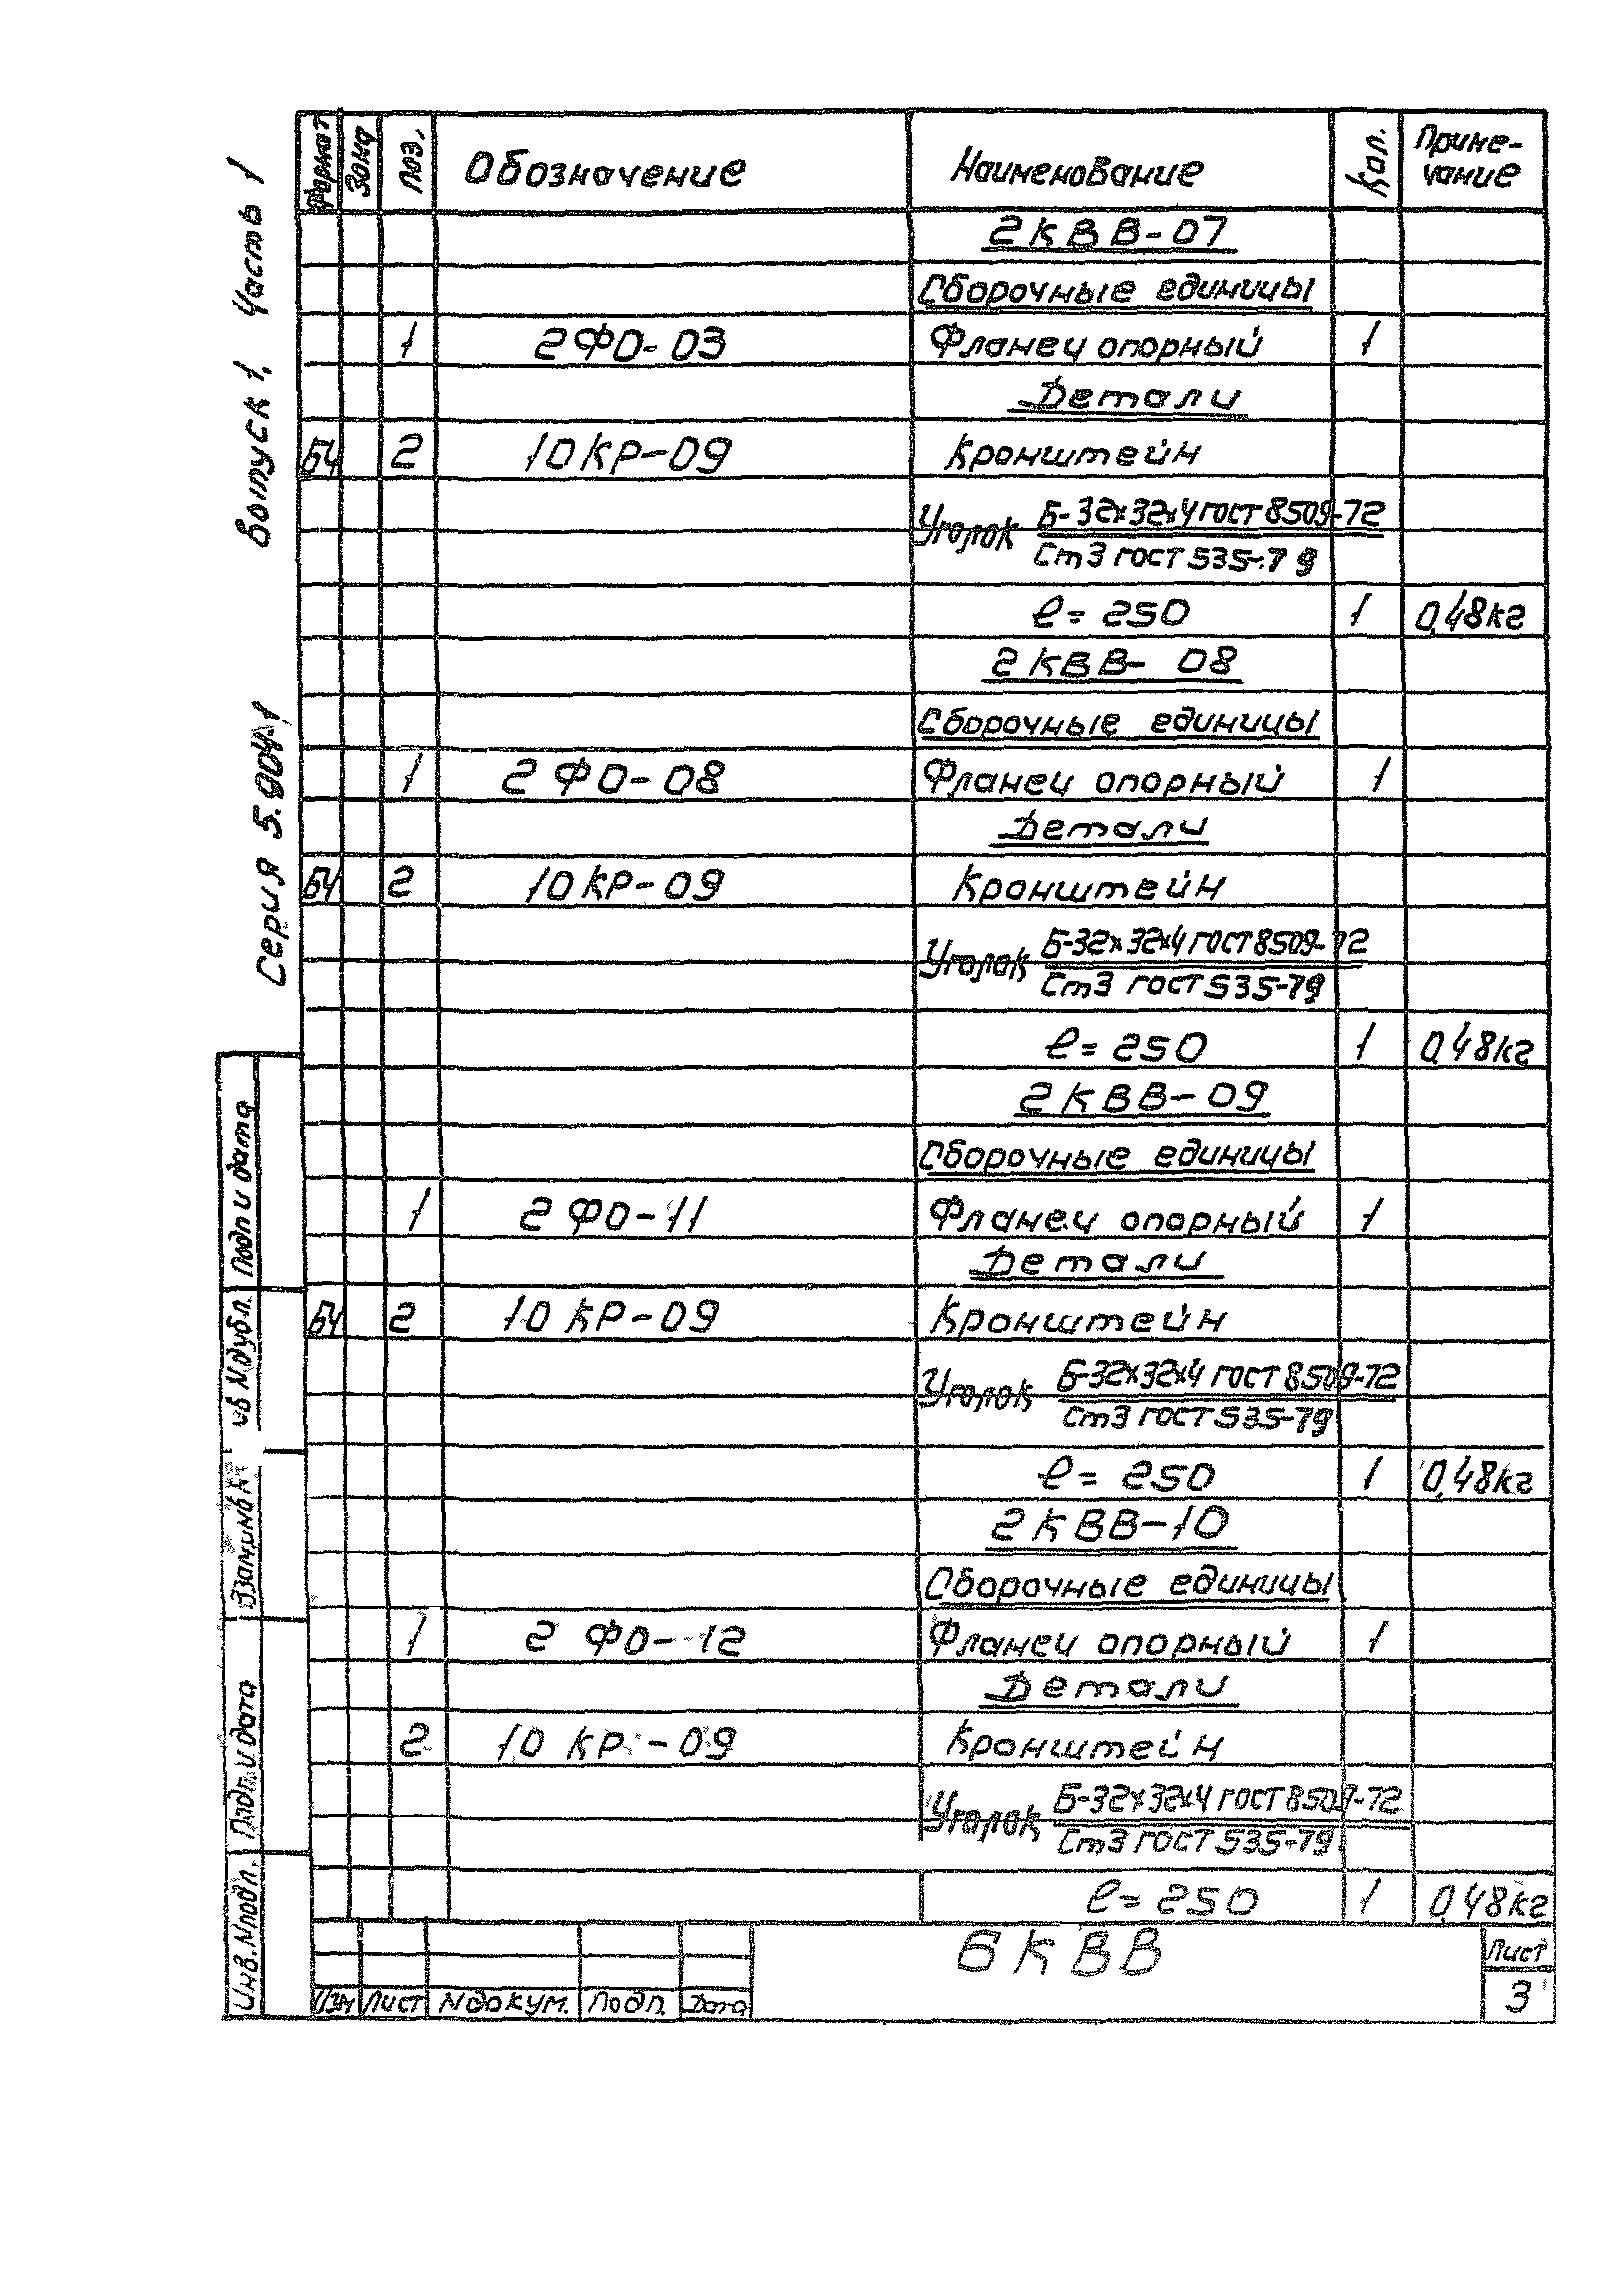 Серия 5.904-1, Выпуск 1, Часть 1
Формат Зона Поз. Обозначение Наименование Кол. Приме-
чание
2КВВ-07
Сборочные единицы
1 2ФО-03 Фланец опорный 1
Детали
БЧ 2 10КР-09 Кронштейн
Уголок Б-32х32х4 ГОСТ 8509-72
Ст3 ГОСТ 535-79
ℓ=250 1 0,48кг
2КВВ-08
Сборочные единицы
1 2ФО-08 Фланец опорный 1
Детали
БЧ 2 10КР-09 Кронштейн
Уголок Б-32х32х4 ГОСТ 8509-72
Ст3 ГОСТ 535-79
ℓ=250 1 0,48кг
2КВВ-09
Сборочные единицы
1 2ФО-11 Фланец опорный 1
Детали
БЧ 2 10КР-09 Кронштейн
Уголок Б-32х32х4 ГОСТ 8509-72
Ст3 ГОСТ 535-79
ℓ=250 1 0,48кг
2КВВ-10
Сборочные единицы
1 2ФО-12 Фланец опорный 1
Детали
2 10КР-09 Кронштейн
Уголок Б-32х32х4 ГОСТ 8509-72
Ст3 ГОСТ 535-79
ℓ=250 1 0,48кг
Инв.Nподл. Подп. и дата Взам инв N ив Nдубл. Подп и дата
Изм Лист Nдокум. Подп. Дата
6КВВ
Лист
3